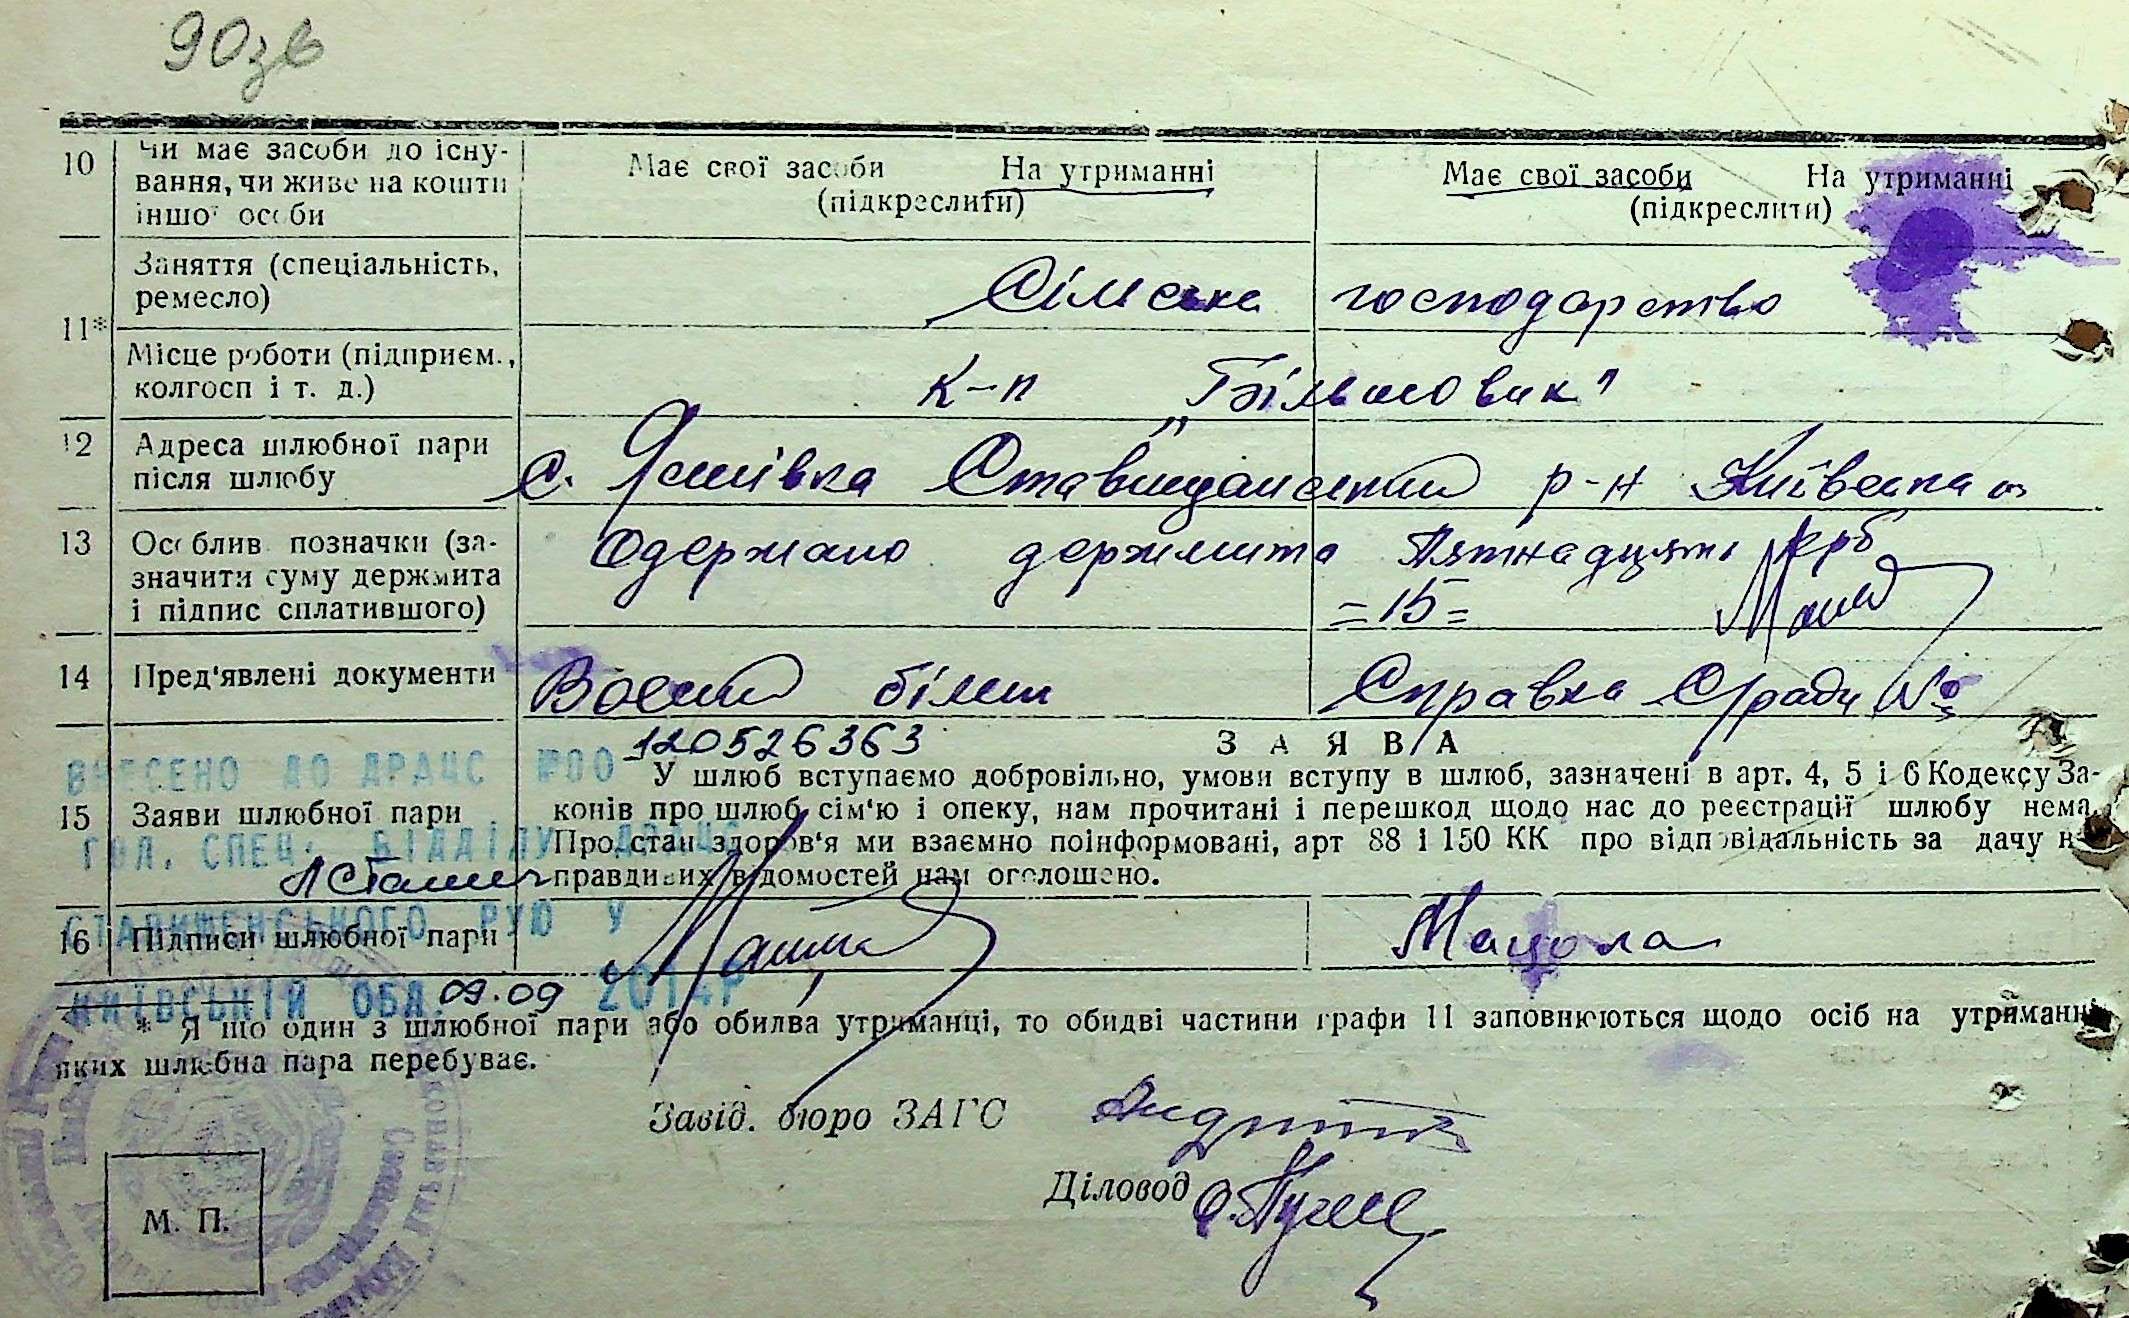 90зв
10 Чи має засоби до існу-
вання, чи живе на кошти
іншої особи
Має свої засоби На утриманні
(підкреслити)
Має свої засоби На утриманні
(підкреслити)
11*
Заняття (спеціальність,
ремесло)
Сільське господарство
Місце роботи (підприєм.,
колгосп і т. д.)
к-п „Більшовик"
12 Адреса шлюбної пари
після шлюбу
с. Ставищанський р-н Київська
13 Особлив. позначки (за-
значити суму держмита
і підпис сплатившого)
Одержано держмита пятнадцять крб
=15=
14 Пред'явлені документи
Воєний білет
Справка С/ради №
120526363
ЗАЯВА
15 Заяви шлюбної пари
У шлюб вступаємо добровільно, умови вступу в шлюб, зазначені в арт. 4, 5 і 6 Кодексу За-
конів про шлюб, сім'ю і опеку, нам прочитані і перешкод щодо нас до реєстрації шлюбу нема.
Про стан здоров'я ми взаємно поінформовані, арт 88 і 150 КК про відповідальність за дачу не-
правдивих відомостей нам оголошено.
16 Підписи шлюбної пари
Мацола
ВНЕСЕНО ДО ДРАЦС
ГОЛ. СПЕЦ. ВІДДІЛУ ДРАЦС
СТАВИЩЕНСЬКОГО РУЮ У
КИЇВСЬКІЙ ОБЛ. 09.09 2014Р
* Якщо один з шлюбної пари або обидва утриманці, то обидві частини графи 11 заповнюються щодо осіб на утриманні
яких шлюбна пара перебуває.
Завід. бюро ЗАГС
Діловод
М. П.